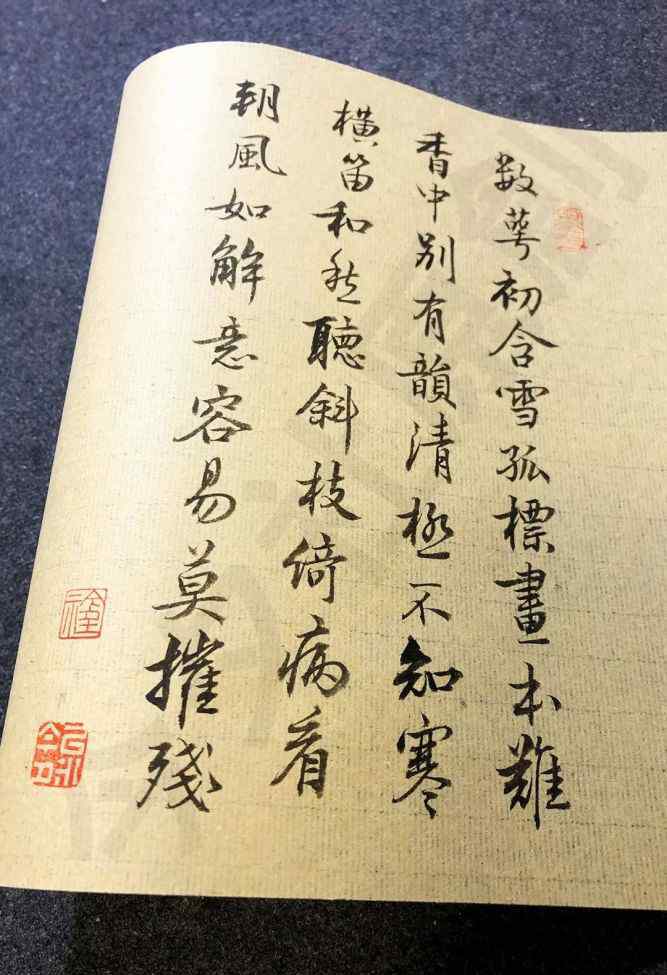 数萼初含雪孤標畫本難
香中別有韻清極不知寒
橫笛和愁聽斜枝倚病看
朔風如解意容易莫摧殘